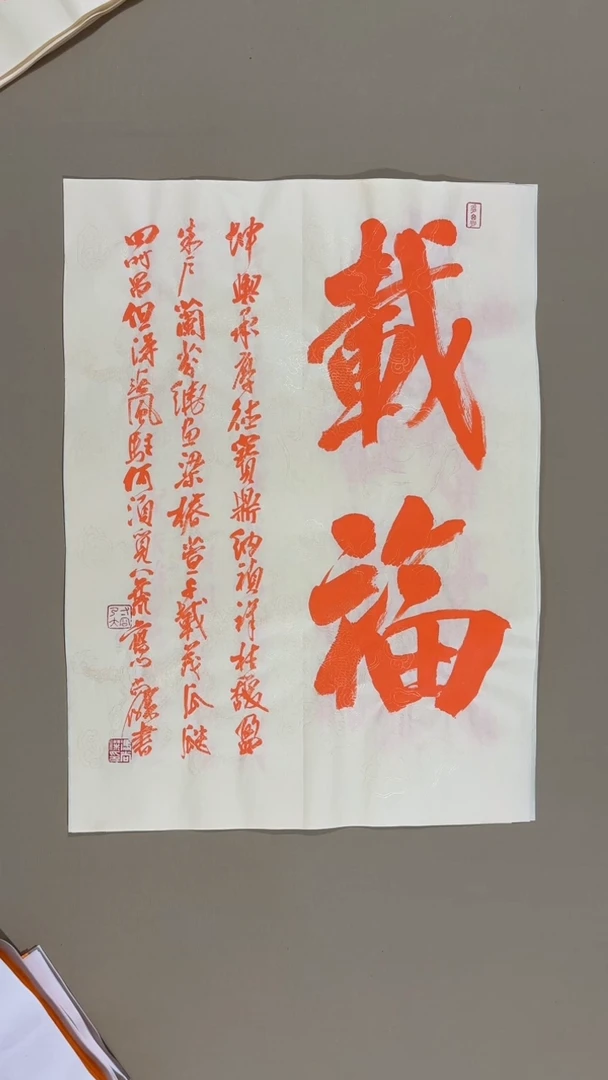 載福
坤輿承厚德寶鼎納禎祥桂馥盈
朱戶蘭芬繞畫梁椿萱千載茂瓜瓞
四時昌但得風駐何須覓八荒書